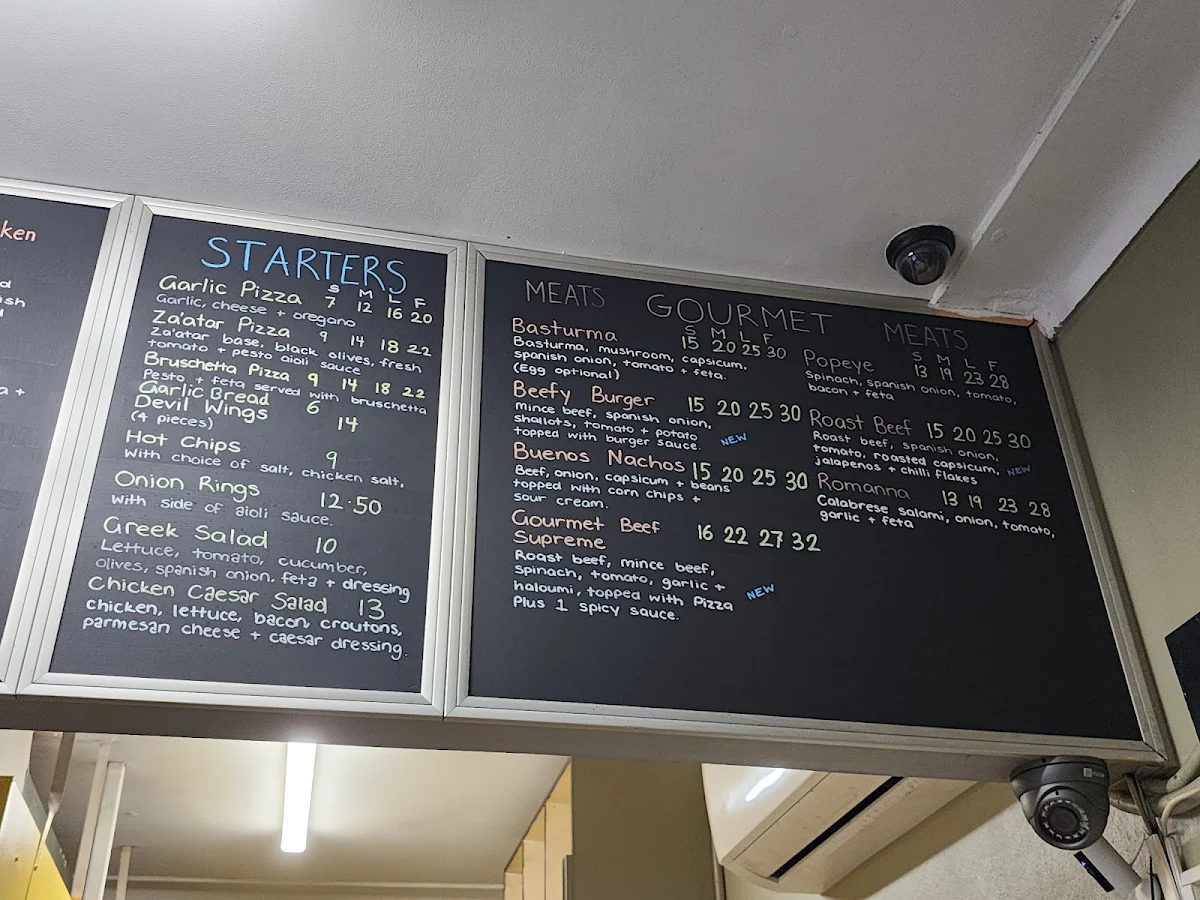 ken
d
sh
a +
STARTERS
S M L F
Garlic Pizza 7 12 16 20
Garlic, cheese + oregano
Za'atar Pizza 9 14 18 22
Za'atar base, black olives, fresh
tomato + pesto aioli sauce
Bruschetta Pizza 9 14 18 22
Pesto + feta served with bruschetta
Garlic Bread 6
Devil Wings 14
(4 pieces)
Hot Chips 9
With choice of salt, chicken salt,
Onion Rings 12.50
With side of aioli sauce.
Greek Salad 10
Lettuce, tomato, cucumber,
olives, spanish onion, feta + dressing
Chicken Caesar Salad 13
chicken, lettuce, bacon, croutons,
parmesan cheese + caesar dressing.
MEATS GOURMET MEATS
S M L F
Basturma 15 20 25 30
Basturma, mushroom, capsicum,
spanish onion, tomato + feta.
(Egg optional)
Beefy Burger 15 20 25 30
Mince beef, spanish onion,
shallots, tomato + potato
topped with burger sauce. NEW
Buenos Nachos 15 20 25 30
Beef, onion, capsicum + beans
topped with corn chips +
sour cream.
Gourmet Beef 16 22 27 32
Supreme
Roast beef, mince beef,
Spinach, tomato, garlic +
haloumi, topped with Pizza NEW
Plus 1 spicy sauce.
S M L F
Popeye 13 19 23 28
Spinach, spanish onion, tomato,
bacon + feta
Roast Beef 15 20 25 30
Roast beef, spanish onion,
tomato, roasted capsicum, NEW
jalapenos + chilli flakes
Romanna 13 19 23 28
Calabrese salami, onion, tomato,
garlic + feta